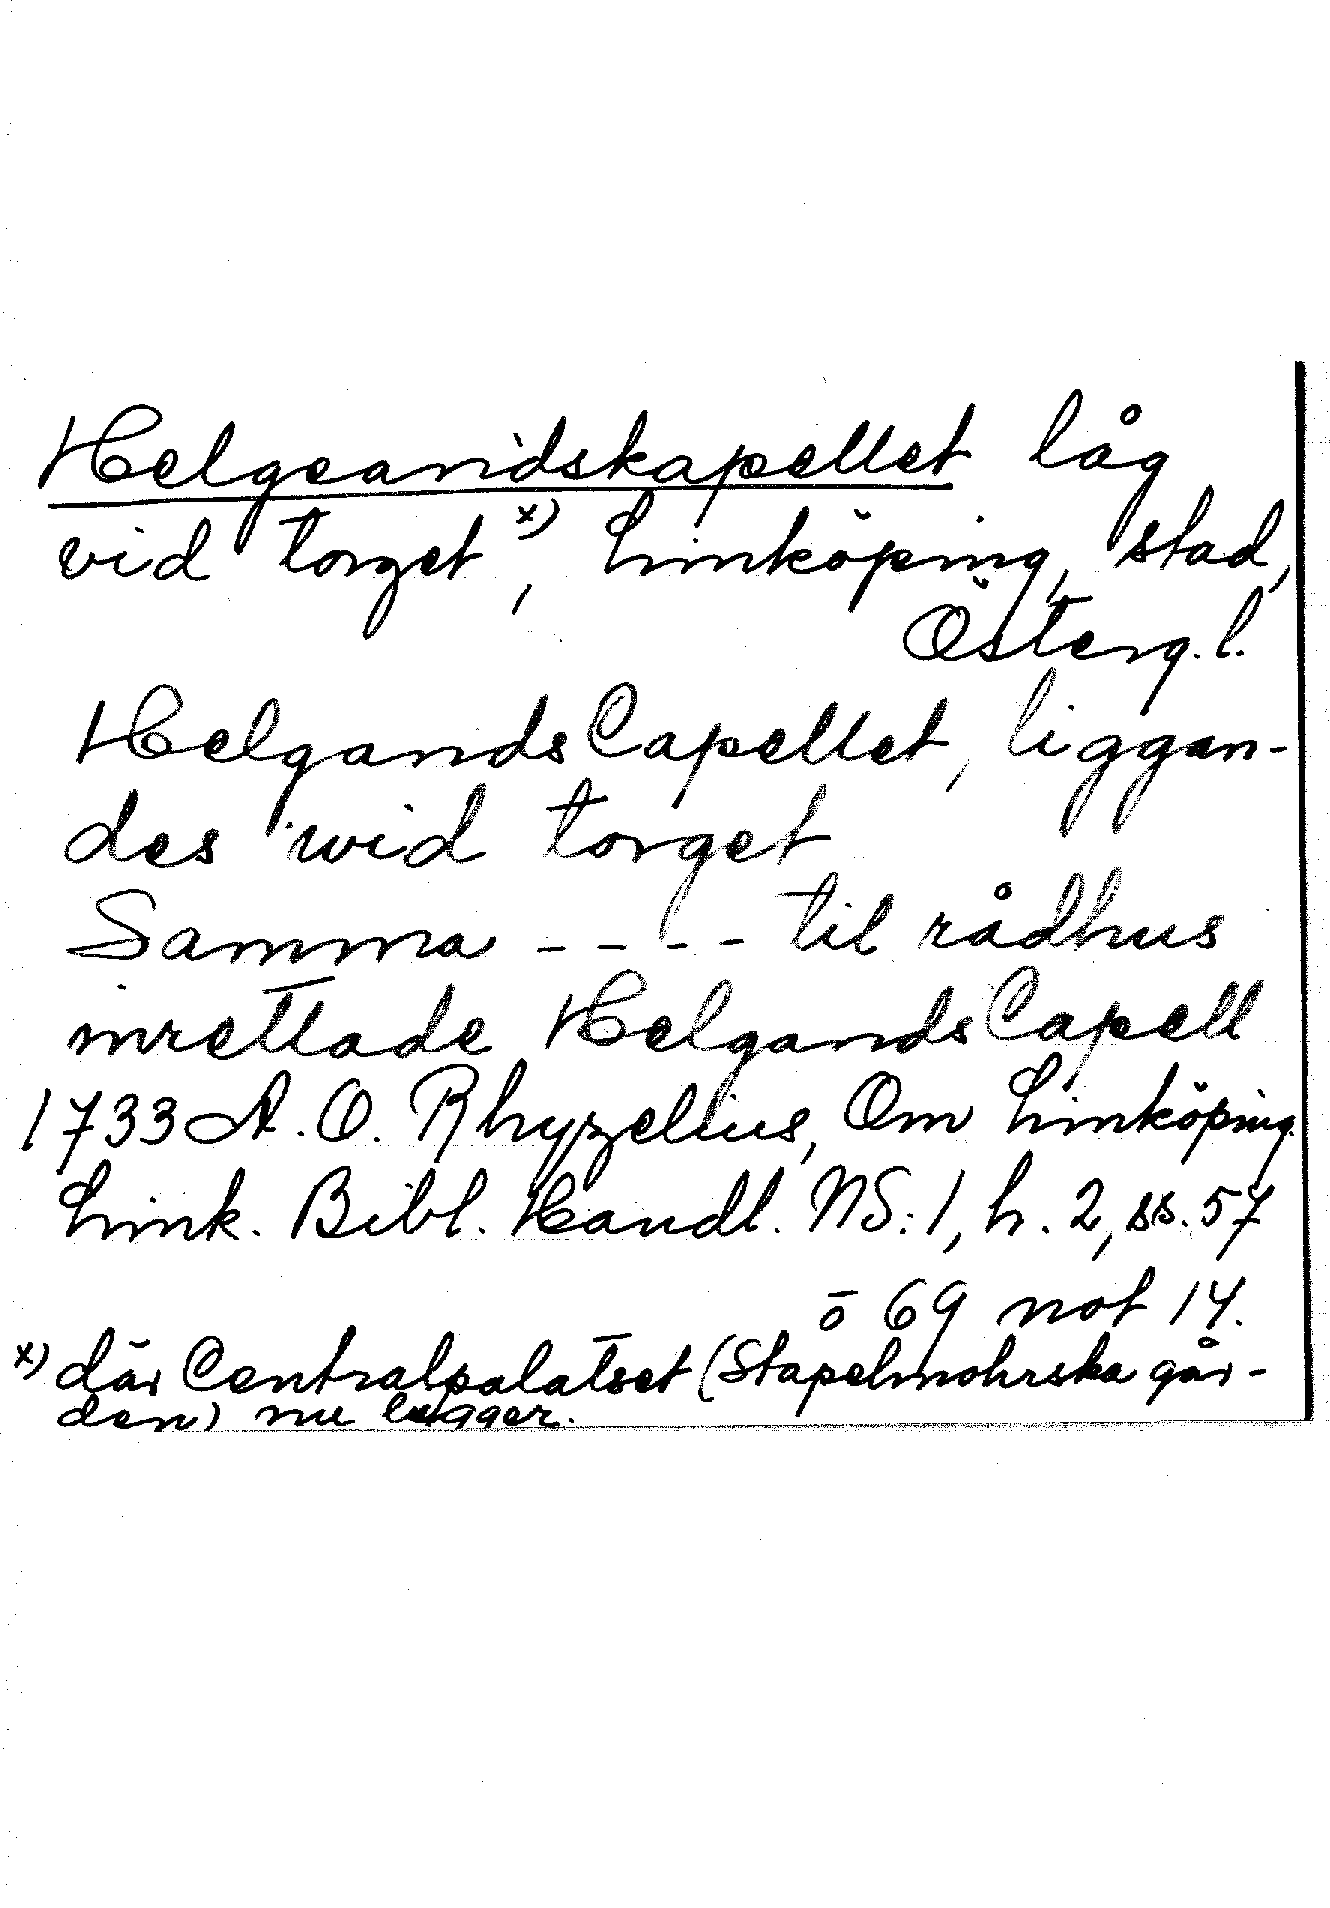 Helgeandskapellet låg
vid torget x), Linköping, stad,
Österg. l.
HelgandsCapellet, liggan-
des wid torget
Samma - - - - til rådhus
inrettade HelgandsCapell
1733 A. O. Rhyzelius, Om Linköping.
Link. Bibl. Handl. NS: 1, h. 2, ss. 57
o 69 not 14.
x) där Centralpalatset (Stapelmohrska går-
den) nu ligger.